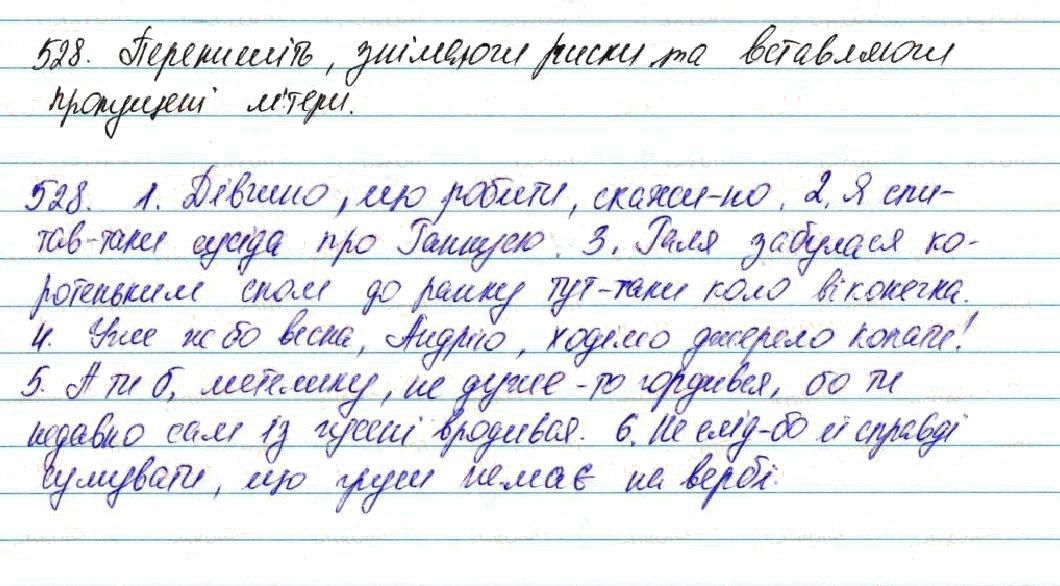 528. Перепишіть, знімаючи риски та вставляючи
пропущені літери.
528. 1. Дівчино, що робити, скажи-но. 2. Я спи-
тав-таки сусіда про Ганнусю. 3. Галя забулася ко-
ротеньким сном до ранку тут-таки коло віконечка.
4. Уже ж бо весна, Андрію, ходімо джерело копати!
5. А ти б, метелику, не дуже-то гордився, бо ти
недавно сам із гусені вродився. 6. Не слід-бо й справді
сумувати, що груш немає на вербі.